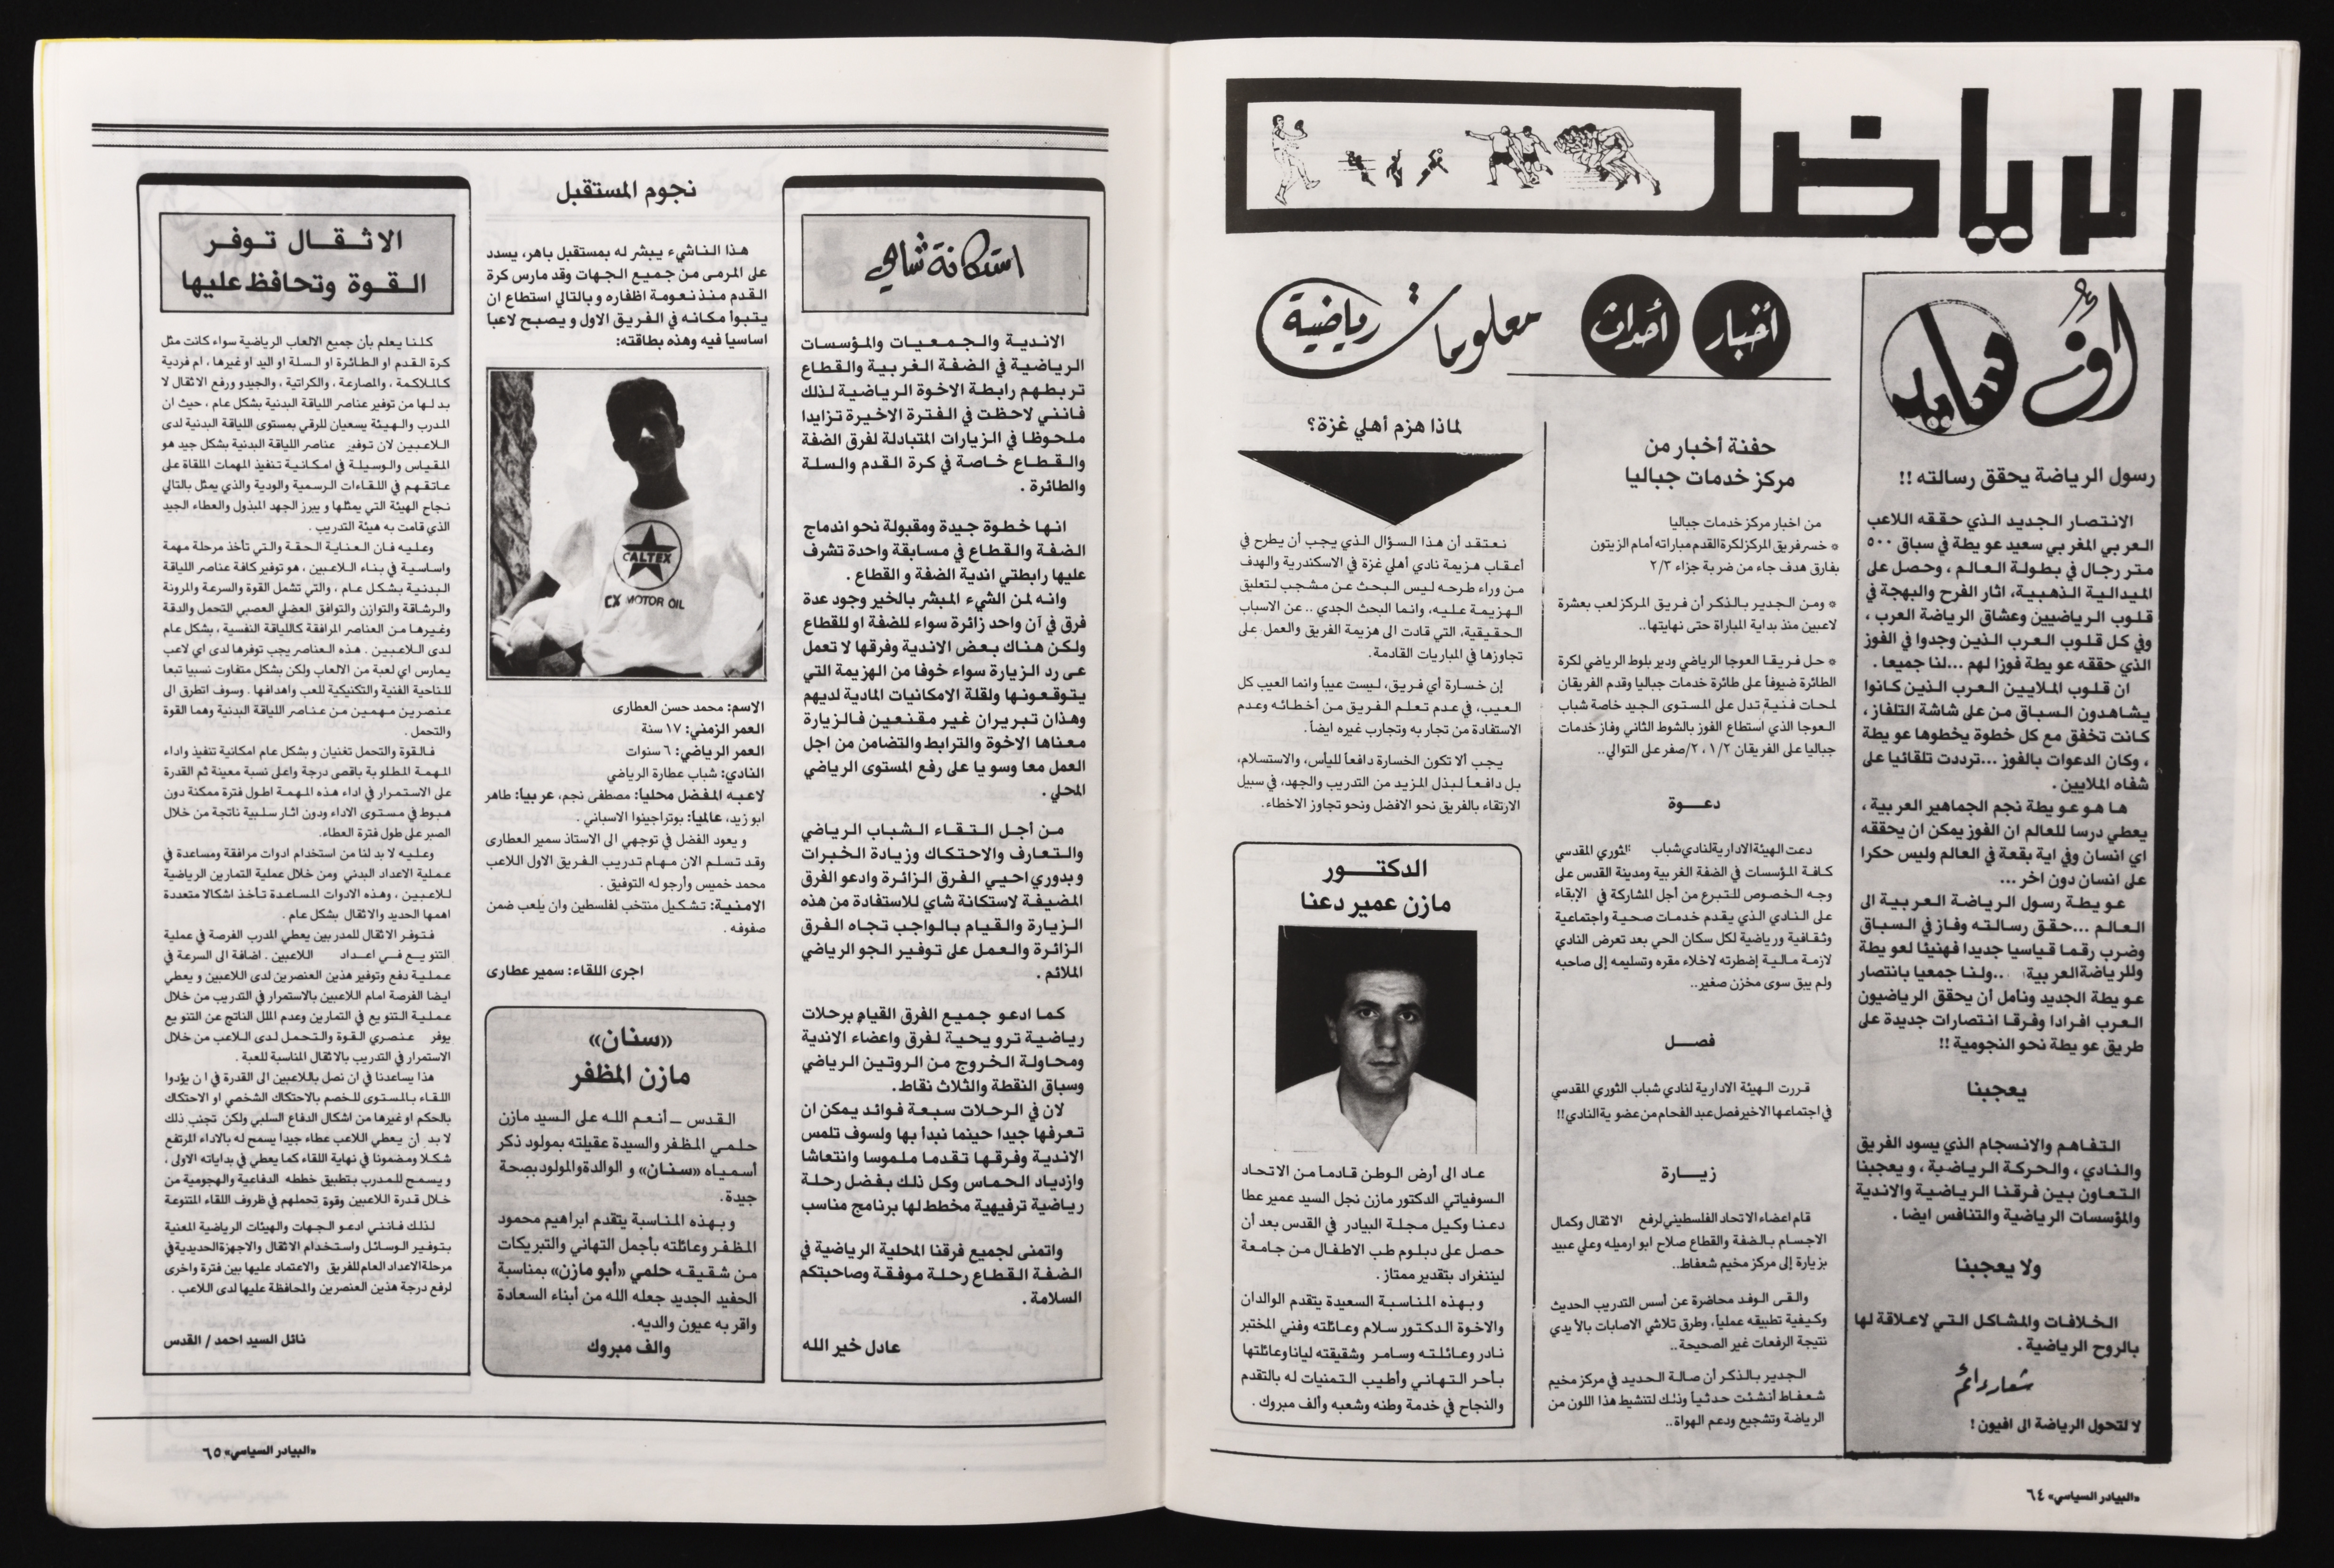 الرياضة
أوف سايد
رسول الرياضة يحقق رسالته !!
الانتصار الجديد الذي حققه اللاعب
العربي المغربي سعيد عويطة في سباق ٥٠٠
متر رجال في بطولة العالم ، وحصل على
الميدالية الذهبية، اثار الفرح والبهجة في
قلوب الرياضيين وعشاق الرياضة العرب ،
وفي كل قلوب العرب الذين وجدوا في الفوز
الذي حققه عويطة فوزا لهم ...لنا جميعا .
ان قلوب الملايين العرب الذين كانوا
يشاهدون السباق من على شاشة التلفاز ،
كانت تخفق مع كل خطوة يخطوها عويطة
، وكان الدعوات بالفوز ...ترددت تلقائيا على
شفاه الملايين .
ها هو عويطة نجم الجماهير العربية ،
يعطي درسا للعالم ان الفوز يمكن ان يحققه
اي انسان وفي اية بقعة في العالم وليس حكرا
على انسان دون اخر ...
عويطة رسول الرياضة العربية الى
العالم ...حقق رسالته وفاز في السباق
وضرب رقما قياسيا جديدا فهنيئا لعويطة
وللرياضة العربية ..ولنا جمعيا بانتصار
عويطة الجديد ونأمل أن يحقق الرياضيون
العرب افرادا وفرقا انتصارات جديدة على
طريق عويطة نحو النجومية !!
يعجبنا
التفاهم والانسجام الذي يسود الفريق
والنادي ، والحركة الرياضية ، ويعجبنا
التعاون بين فرقنا الرياضية والاندية
والمؤسسات الرياضية والتنافس ايضا .
ولا يعجبنا
الخلافات والمشاكل التي لاعلاقة لها
بالروح الرياضية .
شعار دائم
لا لتحول الرياضة الى افيون !
أخبار
أحداث
معلومات رياضية
حفنة أخبار من
مركز خدمات جباليا
من اخبار مركز خدمات جباليا
* خسر فريق المركز لكرة القدم مباراته أمام الزيتون
بفارق هدف جاء من ضربة جزاء ٢/٣
* ومن الجدير بالذكر أن فريق المركز لعب بعشرة
لاعبين منذ بداية المباراة حتى نهايتها..
* حل فريقا العوجا الرياضي ودير بلوط الرياضي لكرة
الطائرة ضيوفاً على طائرة خدمات جباليا وقدم الفريقان
لمحات فنية تدل على المستوى الجيد خاصة شباب
العوجا الذي استطاع الفوز بالشوط الثاني وفاز خدمات
جباليا على الفريقان ١/٢ ، ٢/صفر على التوالي..
دعــوة
دعت الهيئة الادارية لنادي شباب الثوري المقدسي
كافة المؤسسات في الضفة الغربية ومدينة القدس على
وجه الخصوص للتبرع من أجل المشاركة في الإبقاء
على النادي الذي يقدم خدمات صحية واجتماعية
وثقافية ورياضية لكل سكان الحي بعد تعرض النادي
لازمة مالية إضطرته لاخلاء مقره وتسليمه إلى صاحبه
ولم يبق سوى مخزن صغير..
فصــل
قررت الهيئة الادارية لنادي شباب الثوري المقدسي
في اجتماعها الاخير فصل عبد الفحام من عضوية النادي!!
زيــارة
قام اعضاء الاتحاد الفلسطيني لرفع الاثقال وكمال
الاجسام بالضفة والقطاع صلاح ابو ارميله وعلي عبيد
بزيارة إلى مركز مخيم شعفاط..
والقى الوفد محاضرة عن أسس التدريب الحديث
وكيفية تطبيقه عملياً، وطرق تلاشي الاصابات بالأيدي
نتيجة الرفعات غير الصحيحة..
الجدير بالذكر أن صالة الحديد في مركز مخيم
شعفاط أنشئت حدثياً وذلك لتنشيط هذا اللون من
الرياضة وتشجيع ودعم الهواة..
لماذا هزم أهلي غزة؟
نعتقد أن هذا السؤال الذي يجب أن يطرح في
أعقاب هزيمة نادي أهلي غزة في الاسكندرية والهدف
من وراء طرحه ليس البحث عن مشجب لتعليق
الهزيمة عليه، وانما البحث الجدي .. عن الاسباب
الحقيقية، التي قادت الى هزيمة الفريق والعمل على
تجاوزها في المباريات القادمة.
إن خسارة أي فريق، ليست عيباً وانما العيب كل
العيب، في عدم تعلم الفريق من أخطائه وعدم
الاستفادة من تجاربه وتجارب غيره ايضاً.
يجب ألا تكون الخسارة دافعاً لليأس، والاستسلام،
بل دافعاً لبذل المزيد من التدريب والجهد، في سبيل
الارتقاء بالفريق نحو الافضل ونحو تجاوز الاخطاء.
الدكتــور
مازن عمير دعنا
عاد الى أرض الوطن قادما من الاتحاد
السوفياتي الدكتور مازن نجل السيد عمير عطا
دعنا وكيل مجلة البيادر في القدس بعد أن
حصل على دبلوم طب الاطفال من جامعة
ليننغراد بتقدير ممتاز .
وبهذه المناسبة السعيدة يتقدم الوالدان
والاخوة الدكتور سلام وعائلته وفني المختبر
نادر وعائلته وسامر وشقيقته ليانا وعائلتها
بأحر التهاني وأطيب التمنيات له بالتقدم
والنجاح في خدمة وطنه وشعبه وألف مبروك .
«البيادر السياسي» ٦٤
استكانة شاي
الاندية والجمعيات والمؤسسات
الرياضية في الضفة الغربية والقطاع
تربطهم رابطة الاخوة الرياضية لذلك
فانني لاحظت في الفترة الاخيرة تزايدا
ملحوظا في الزيارات المتبادلة لفرق الضفة
والقطاع خاصة في كرة القدم والسلة
والطائرة .
انها خطوة جيدة ومقبولة نحو اندماج
الضفة والقطاع في مسابقة واحدة تشرف
عليها رابطتي اندية الضفة و القطاع .
وانه لمن الشيء المبشر بالخير وجود عدة
فرق في آن واحد زائرة سواء للضفة او للقطاع
ولكن هناك بعض الاندية وفرقها لا تعمل
عى رد الزيارة سواء خوفا من الهزيمة التي
يتوقعونها ولقلة الامكانيات المادية لديهم
وهذان تبريران غير مقنعين فالزيارة
معناها الاخوة والترابط والتضامن من اجل
العمل معا وسويا على رفع المستوى الرياضي
المحلي .
من أجل التقاء الشباب الرياضي
والتعارف والاحتكاك وزيادة الخبرات
وبدوري احيي الفرق الزائرة وادعو الفرق
المضيفة لاستكانة شاي للاستفادة من هذه
الزيارة والقيام بالواجب تجاه الفرق
الزائرة والعمل على توفير الجو الرياضي
الملائم .
كما ادعو جميع الفرق القيام برحلات
رياضية ترويحية لفرق واعضاء الاندية
ومحاولة الخروج من الروتين الرياضي
وسباق النقطة والثلاث نقاط.
لان في الرحلات سبعة فوائد يمكن ان
تعرفها جيدا حينما نبدأ بها ولسوف تلمس
الاندية وفرقها تقدما ملموسا وانتعاشا
وازدياد الحماس وكل ذلك بفضل رحلة
رياضية ترفيهية مخطط لها برنامج مناسب
واتمنى لجميع فرقنا المحلية الرياضية في
الضفة القطاع رحلة موفقة وصاحبتكم
السلامة .
عادل خير الله
نجوم المستقبل
هذا الناشيء يبشر له بمستقبل باهر، يسدد
على المرمى من جميع الجهات وقد مارس كرة
القدم منذ نعومة اظفاره وبالتالي استطاع ان
يتبوأ مكانه في الفريق الاول ويصبح لاعبا
اساسيا فيه وهذه بطاقته:
CALTEX
CX MOTOR OIL
الاسم: محمد حسن العطارى
العمر الزمني: ١٧ سنة
العمر الرياضي: ٦ سنوات
النادي: شباب عطارة الرياضي
لاعبه المفضل محليا: مصطفى نجم، عربيا: طاهر
ابو زيد، عالميا: بوتراجينوا الاسباني .
ويعود الفضل في توجهي الى الاستاذ سمير العطارى
وقد تسلم الان مهام تدريب الفريق الاول اللاعب
محمد خميس وأرجو له التوفيق .
الامنية: تشكيل منتخب لفلسطين وان يلعب ضمن
صفوفه .
اجرى اللقاء: سمير عطارى
«سنان»
مازن المظفر
القدس ــ أنعم الله على السيد مازن
حلمي المظفر والسيدة عقيلته بمولود ذكر
أسمياه «سنان» و الوالدة والمولود بصحة
جيدة.
وبهذه المناسبة يتقدم ابراهيم محمود
المظفر وعائلته بأجمل التهاني والتبريكات
من شقيقه حلمي «أبو مازن» بمناسبة
الحفيد الجديد جعله الله من أبناء السعادة
واقر به عيون والديه.
والف مبروك
الاثقـال توفـر
القوة وتحافظ عليها
كلنا يعلم بأن جميع الالعاب الرياضية سواء كانت مثل
كرة القدم او الطائرة او السلة او اليد او غيرها ، ام فردية
كالملاكمة ، والمصارعة ، والكراتية ، والجيدو ورفع الاثقال لا
بد لها من توفير عناصر اللياقة البدنية بشكل عام ، حيث ان
المدرب والهيئة يسعيان للرقي بمستوى اللياقة البدنية لدى
اللاعبين لان توفير عناصر اللياقة البدنية بشكل جيد هو
المقياس والوسيلة في امكانية تنفيذ المهمات الملقاة على
عاتقهم في اللقاءات الرسمية والودية والذي يمثل بالتالي
نجاح الهيئة التي يمثلها ويبرز الجهد المبذول والعطاء الجيد
الذي قامت به هيئة التدريب .
وعليه فان العناية الحقة والتي تأخذ مرحلة مهمة
واساسية في بناء اللاعبين ، هو توفير كافة عناصر اللياقة
البدنية بشكل عام ، والتي تشمل القوة والسرعة والمرونة
والرشاقة والتوازن والتوافق العضلي العصبي التحمل والدقة
وغيرها من العناصر المرافقة كاللياقة النفسية ، بشكل عام
لدى اللاعبين . هذه العناصر يجب توفرها لدى اي لاعب
يمارس اي لعبة من الالعاب ولكن بشكل متفاوت نسبيا تبعا
للناحية الفنية والتكنيكية للعب واهدافها . وسوف اتطرق الى
عنصرين مهمين من عناصر اللياقة البدنية وهما القوة
والتحمل .
فالقوة والتحمل تغنيان وبشكل عام امكانية تنفيذ واداء
المهمة المطلوبة باقصى درجة واعلى نسبة معينة ثم القدرة
على الاستمرار في اداء هذه المهمة اطول فترة ممكنة دون
هبوط في مستوى الاداء ودون اثار سلبية ناتجة من خلال
الصبر على طول فترة العطاء.
وعليه لا بد لنا من استخدام ادوات مرافقة ومساعدة في
عملية الاعداد البدني ومن خلال عملية التمارين الرياضية
للاعبين ، وهذه الادوات المساعدة تأخذ اشكالا متعددة
اهمها الحديد والاثقال بشكل عام .
فتوفر الاثقال للمدربين يعطي المدرب الفرصة في عملية
التنويع في اعداد اللاعبين . اضافة الى السرعة في
عملية دفع وتوفير هذين العنصرين لدى اللاعبين ويعطي
ايضا الفرصة امام اللاعبين بالاستمرار في التدريب من خلال
عملية التنويع في التمارين وعدم الملل الناتج عن التنويع
يوفر عنصري القوة والتحمل لدى اللاعب من خلال
الاستمرار في التدريب بالاثقال المناسبة للعبة .
هذا يساعدنا في ان نصل باللاعبين الى القدرة في ان يؤدوا
اللقاء بالمستوى للخصم بالاحتكاك الشخصي او الاحتكاك
بالحكم او غيرها من اشكال الدفاع السلبي ولكن تجنب ذلك
لا بد أن يعطي اللاعب عطاء جيدا يسمح له بالاداء المرتفع
شكلا ومضمونا في نهاية اللقاء كما يعطي في بداياته الاولى ،
ويسمح للمدرب بتطبيق خططه الدفاعية والهجومية من
خلال قدرة اللاعبين وقوة تحملهم في ظروف اللقاء المتنوعة
لذلك فانني ادعو الجهات والهيئات الرياضية المعنية
بتوفير الوسائل واستخدام الاثقال والاجهزة الحديدية في
مرحلة الاعداد العام للفريق والاعتماد عليها بين فترة واخرى
لرفع درجة هذين العنصرين والمحافظة عليها لدى اللاعب .
نائل السيد احمد / القدس
«البيادر السياسي» ٦٥